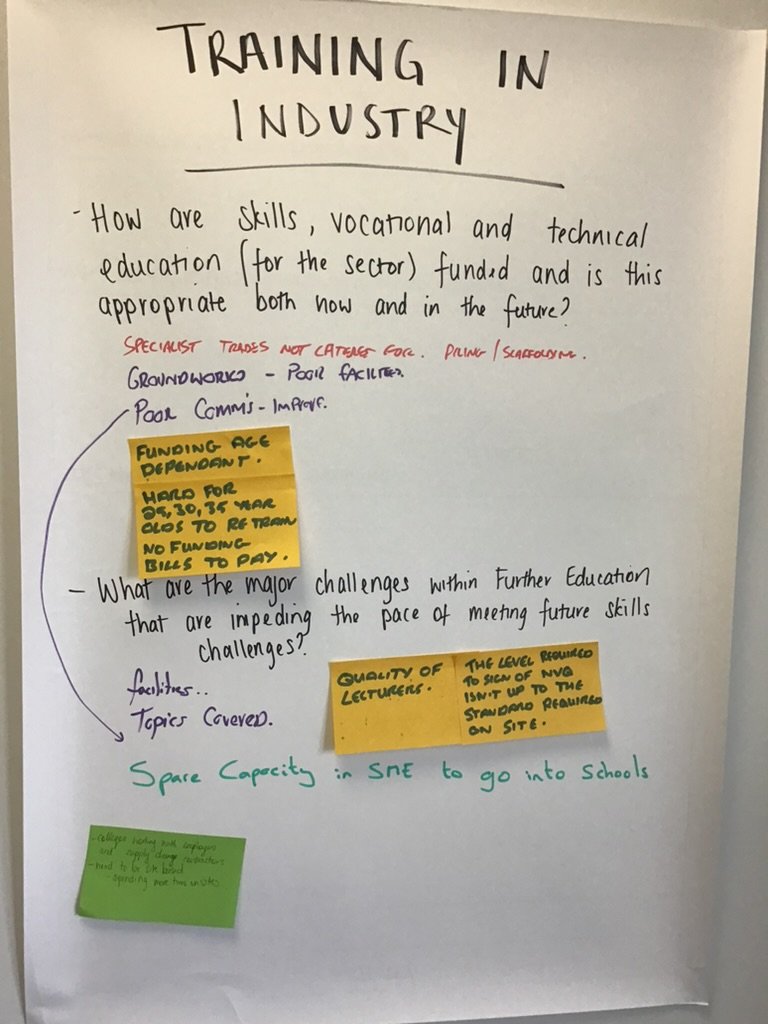 TRAINING IN
INDUSTRY
- How are skills, vocational and technical
education (for the sector) funded and is this
appropriate both now and in the future?
SPECIALIST TRADES NOT CATERED FOR. PILING / SCAFFOLDING.
GROUNDWORKS - POOR FACILITIES.
POOR COMM'S - IMPROVE.
FUNDING AGE
DEPENDANT.
HARD FOR
25, 30, 35 YEAR
OLDS TO RETRAIN
NO FUNDING
BILLS TO PAY.
- What are the major challenges within Further Education
that are impeding the pace of meeting future skills
challenges?
facilities..
Topics Covered.
QUALITY OF
LECTURERS.
THE LEVEL REQUIRED
TO SIGN OF NVQ
ISN'T UP TO THE
STANDARD REQUIRED
ON SITE.
Spare Capacity in SME to go into Schools
- colleges working with employers
and supply change contractors
- need to be site based
- spending more time on sites